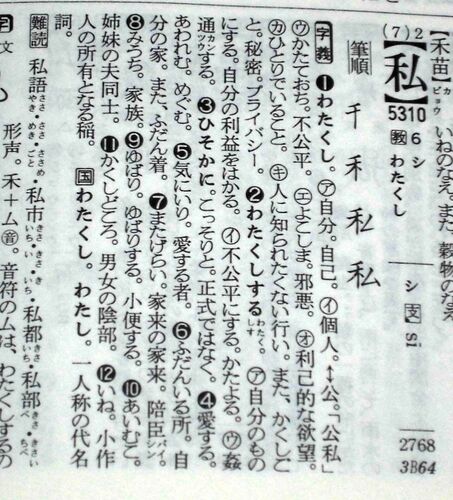 【禾苗】カビョウ いねのなえ。また、穀物のなえ
(7) 2
【私】
5310
6 シ
教 わたくし
シ 支 sī
2768
3B64
筆順 千 禾 私 私
字義 ❶わたくし。㋐自分。自己。㋑個人。↕公。「公私」
㋒かたておち。不公平。㋓よこしま。邪悪。㋔利己的な欲望。
㋕ひとりでいること。㋖人に知られたくない行い。また、かくしご
と。秘密。プライバシー。❷わたくしする。㋐自分のもの
にする。自分の利益をはかる。㋑不公平にする。かたよる。㋒姦
通する。❸ひそかに。こっそりと。正式ではなく。❹愛する。
あわれむ。めぐむ。❺気にいり。愛する者。❻ふだんいる所。自
分の家。また、ふだん着。❼またげらい。家来の家来。陪臣バイシン。
❽みうち。家族。❾ゆばり。ゆばりする。小便する。❿あいむこ。
姉妹の夫同士。⓫かくしどころ。男女の陰部。⓬いね。小作
人の所有となる稲。 国わたくし。わたし。一人称の代名
詞。
難読 私語ささやき・ささめき・ささめごと・私市きさいち・きさい・きさいち・私都きさいち・私部きさべ・きさいべ
形声。禾＋ム㊥。音符のムは、わたくしするの